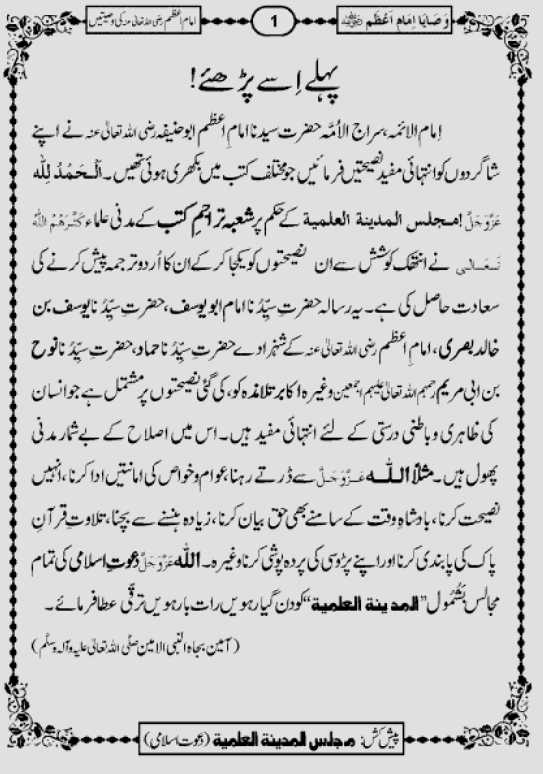 وَصَایا اِمَامِ اَعْظَم رضی اللہ عنہ
1
امامِ اعظم رضی اللہ تعالیٰ عنہ کی وصیتیں
پہلے اِسے پڑھئے!
اِمام الائمہ، سراج الاُمَّہ حضرت سیدنا امامِ اعظم ابوحنیفہ رضی اللہ تعالیٰ عنہ نے اپنے
شاگردوں کو انتہائی مفید نصیحتیں فرمائیں جو مختلف کتب میں بکھری ہوئی تھیں۔ اَلْحَمْدُ لِلّٰه
عَزَّوَجَلَّ! مجلس المدینة العلمیة کے حکم پر شعبہ تراجمِ کتب کے مدنی علماء کَثَّرَهُمُ اللّٰهُ
تَعَالٰی نے انتھک کوشش سے ان نصیحتوں کو یکجا کرکے ان کا اُردو ترجمہ پیش کرنے کی
سعادت حاصل کی ہے۔ یہ رسالہ حضرتِ سیِّدُنا امام ابویوسف، حضرتِ سیِّدُنا یوسف بن
خالد بصری، امامِ اعظم رضی اللہ تعالیٰ عنہ کے شہزادے حضرتِ سیِّدُنا حماد، حضرتِ سیِّدُنا نوح
بن ابی مریم رحمہم اللہ تعالیٰ علیہم اجمعین وغیرہ اکابر تلامذہ کو، کی گئی نصیحتوں پر مشتمل ہے جو انسان
کی ظاہری و باطنی درستی کے لئے انتہائی مفید ہیں۔ اس میں اصلاح کے بے شمار مدنی
پھول ہیں۔ مثلاً اللّٰه عَزَّوَجَلَّ سے ڈرتے رہنا، عوام و خواص کی امانتیں ادا کرنا، انہیں
نصیحت کرنا، بادشاہِ وقت کے سامنے بھی حق بیان کرنا، زیادہ ہنسنے سے بچنا، تلاوتِ قرآنِ
پاک کی پابندی کرنا اور اپنے پڑوسی کی پردہ پوشی کرنا وغیرہ۔ اللّٰه عَزَّوَجَلَّ دعوتِ اسلامی کی تمام
مجالس بَشُمُول "المدینة العلمیة" کو دن گیارہویں رات بارہویں ترقّی عطا فرمائے۔
(آمین بجاہ النبی الامین صلَّی اللہ تعالیٰ علیہ واٰلہٖ وسلَّم)
پیش کش: مجلس المدینة العلمیة (دعوتِ اسلامی)